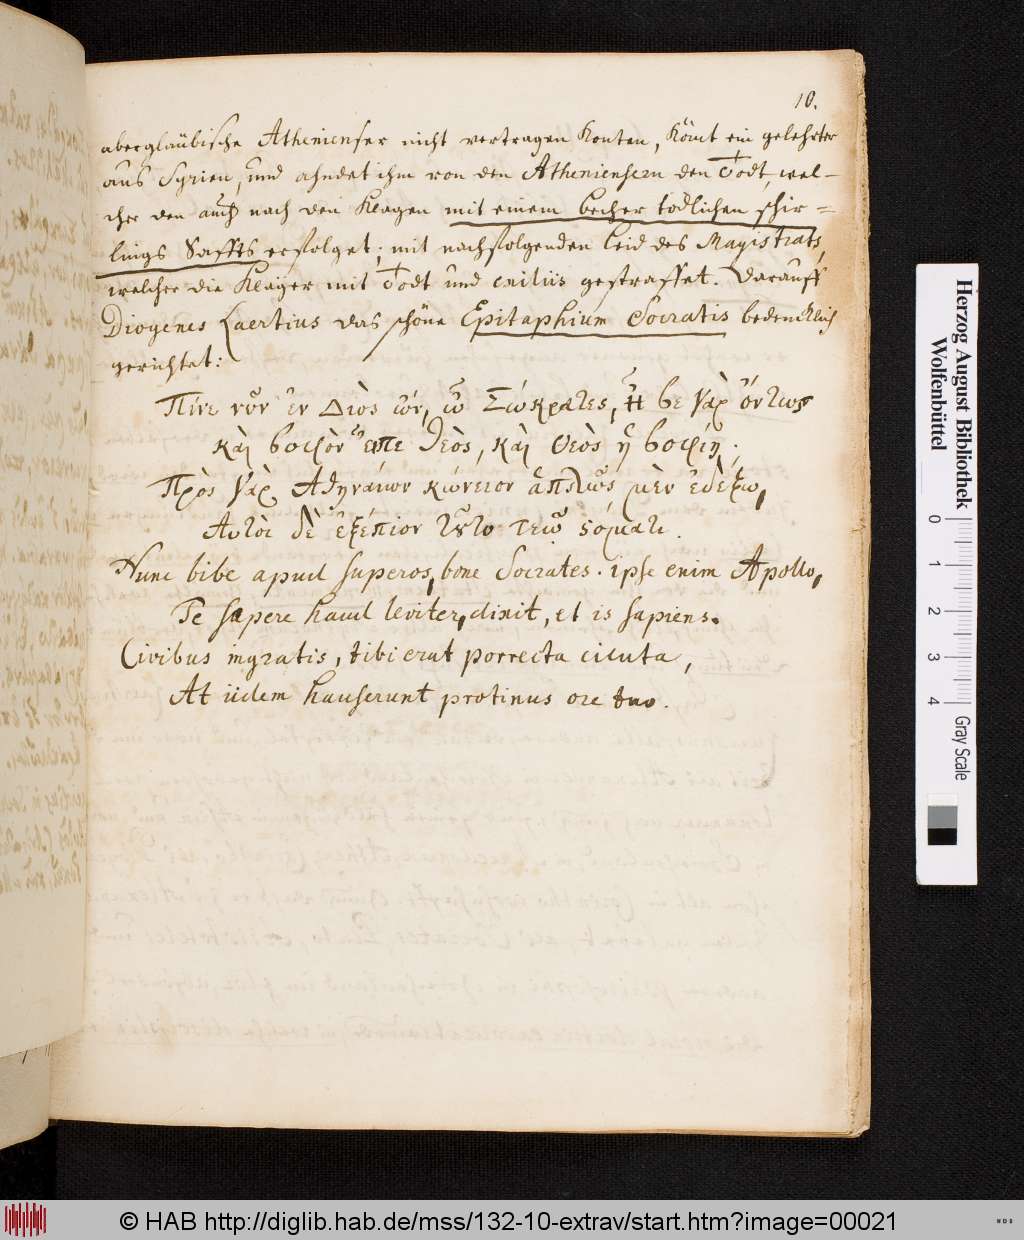 10.
abergläubische Athenienser nicht vertragen konten, kömt ein gelehrter
aus Syrien, und ahndet ihm von den Atheniensern den Todt, wel-
cher den auch nach den Klagen mit einem becher todlichen schir=
lings Saffts erfolget; mit nachfolgenden leid des Magistrats,
welcher die Kläger mit Todt und exiliis gestraffet. Darauff
Diogenes Laertius das schöne Epitaphium Socratis bedencklich
gerichtet:
Πῖνε νῦν ἐν Διὸς ὢν, ὦ Σώκρατες, ἦ σε γὰρ ὄντως
καὶ σοφὸν εἶπε θεὸς, καὶ θεὸς ἡ σοφίη.
Πρὸς γὰρ Ἀθηναίων κώνειον ἁπλῶς μὲν ἐδέξω,
Αὐτοὶ δὲ ἐξέπιον τοῦτο τεῷ στόματι.
Nunc bibe apud superos, bone Socrates. ipse enim Apollo,
Te sapere haud leviter, dixit, et is sapiens.
Civibus ingratis, tibi erat porrecta cicuta,
At iidem hauserunt protinus ore tuo.
Herzog August Bibliothek
Wolfenbüttel
0 1 2 3 4
Gray Scale
© HAB http://diglib.hab.de/mss/132-10-extrav/start.htm?image=00021